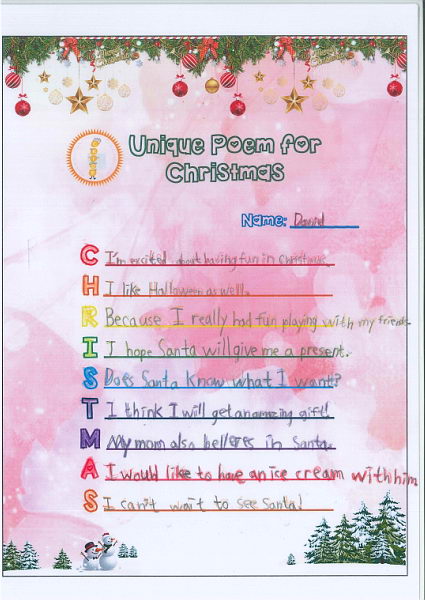 Unique Poem for
Christmas
Name: David
C I'm excited about having fun in christmas
H I like Halloween as well.
R Because I really had fun playing with my friends.
I I hope Santa will give me a present.
S Does Santa know what I want?
T I think I will get an amazing gift!
M My mom also belleres in Santa.
A I would like to have an ice cream with him
S I can't wait to see Santa!